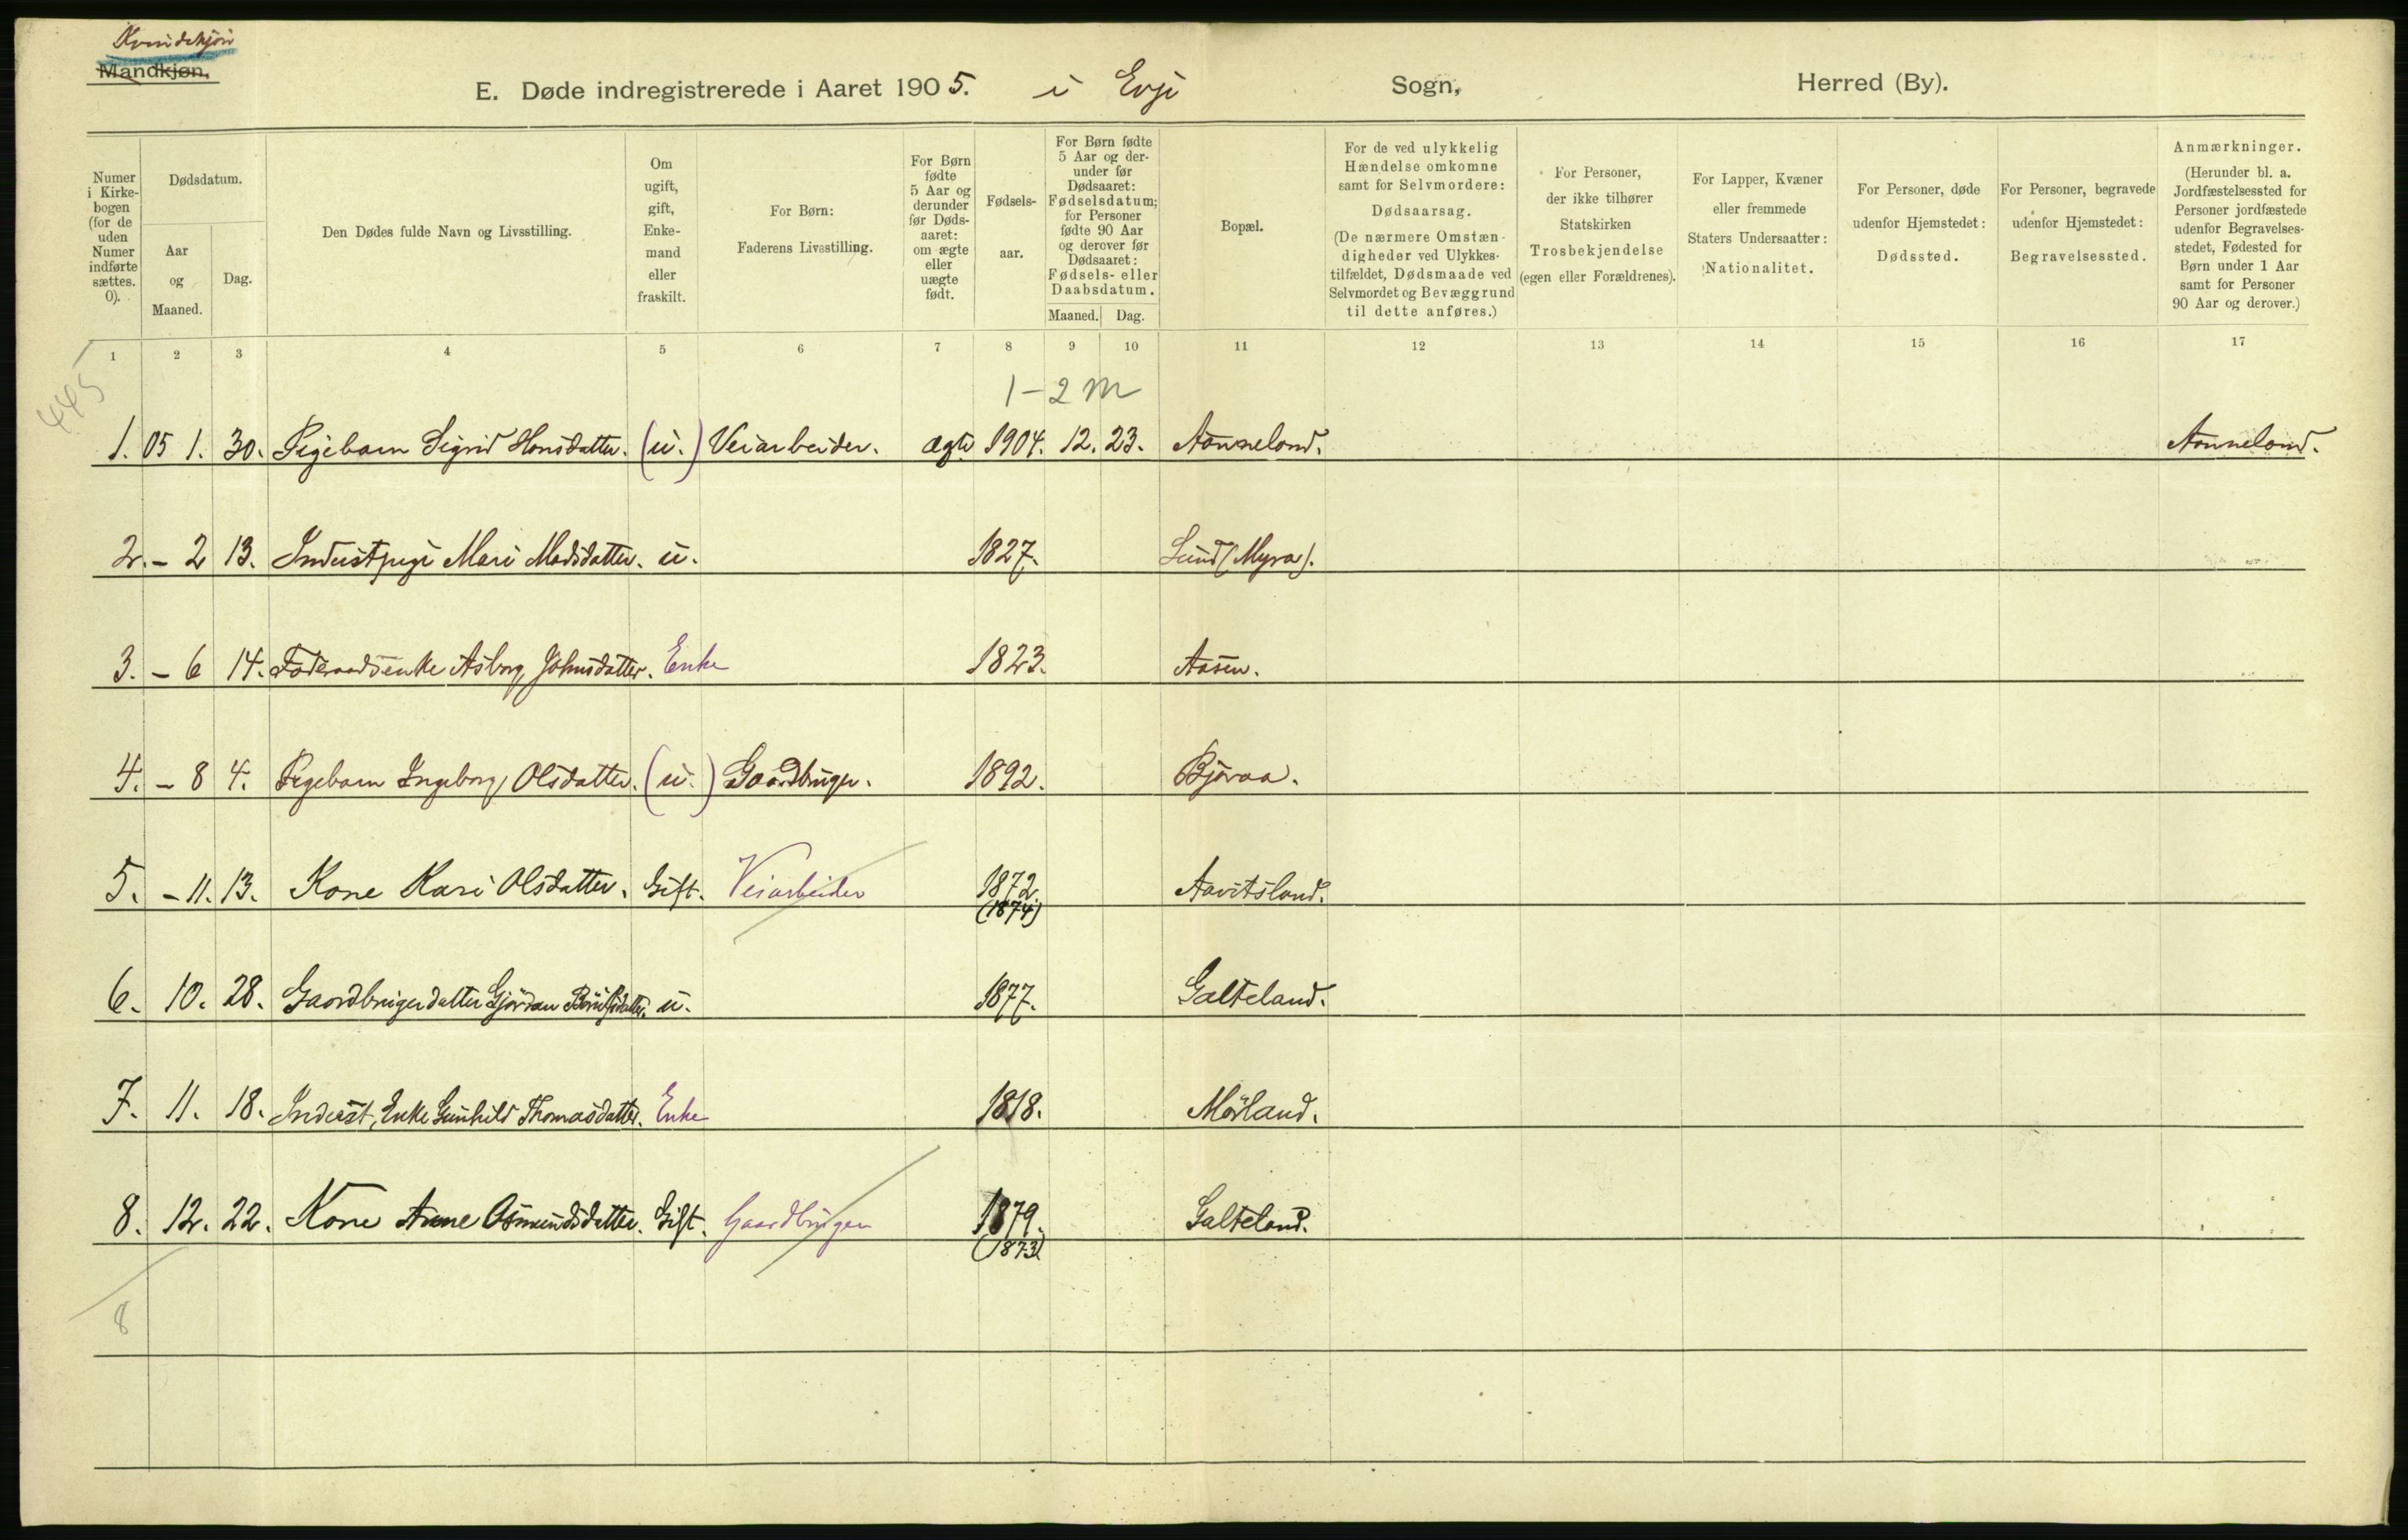 Kvindekjøn
Mandkjøn.
E. Døde indregistrerede i Aaret 1905. i Evje Sogn, Herred (By).
Numer i Kirkebogen (for de uden Numer indførte sættes. 0).
Dødsdatum.
Aar og Maaned.
Dag.
Den Dødes fulde Navn og Livsstilling.
Om ugift, gift, Enkemand eller fraskilt.
For Børn:
Faderens Livsstilling.
For Børn fødte 5 Aar og derunder før Dødsaaret: om ægte eller uægte født.
Fødselsaar.
For Børn fødte 5 Aar og derunder før Dødsaaret: Fødselsdatum; for Personer fødte 90 Aar og derover før Dødsaaret: Fødsels- eller Daabsdatum.
Maaned. Dag.
Bopæl.
For de ved ulykkelig Hændelse omkomne samt for Selvmordere: Dødsaarsag. (De nærmere Omstændigheder ved Ulykkestilfældet, Dødsmaade ved Selvmordet og Bevæggrund til dette anføres.)
For Personer, der ikke tilhører Statskirken Trosbekjendelse (egen eller Forældrenes).
For Lapper, Kvæner eller fremmede Staters Undersaatter: Nationalitet.
For Personer, døde udenfor Hjemstedet: Dødssted.
For Personer, begravede udenfor Hjemstedet: Begravelsessted.
Anmærkninger. (Herunder bl. a. Jordfæstelsessted for Personer jordfæstede udenfor Begravelsesstedet, Fødested for Børn under 1 Aar samt for Personer 90 Aar og derover.)
1 2 3 4 5 6 7 8 9 10 11 12 13 14 15 16 17
445
1-2 m
1. 05 1. 30. Pigebarn Sigrid Hansdatter. (u.) Veiarbeider. ægte 1904. 12. 23. Aanneland. Aanneland.
2. - 2 13. Inderstpige Mari Madsdatter. u. 1827. Lund (Myra).
3. - 6 14. Føderaadsenke Asborg Johnsdatter. Enke 1823. Aasen.
4. - 8 4. Pigebarn Ingeborg Olsdatter. (u.) Gaardbruger. 1892. Bjoraa.
5. - 11. 13. Kone Kari Olsdatter. Gift. Veiarbeider 1872. Aavitsland.
(1874)
6. 10. 28. Gaardbrugerdatter u. 1877. Galteland.
7. 11. 18. Inderst, Enke Gunhild Thomasdatter. Enke 1818. Mørland.
8. 12. 22. Kone Anne Osmundsdatter. Gift. Gaardbruger 1879. Galteland.
(1873)
8